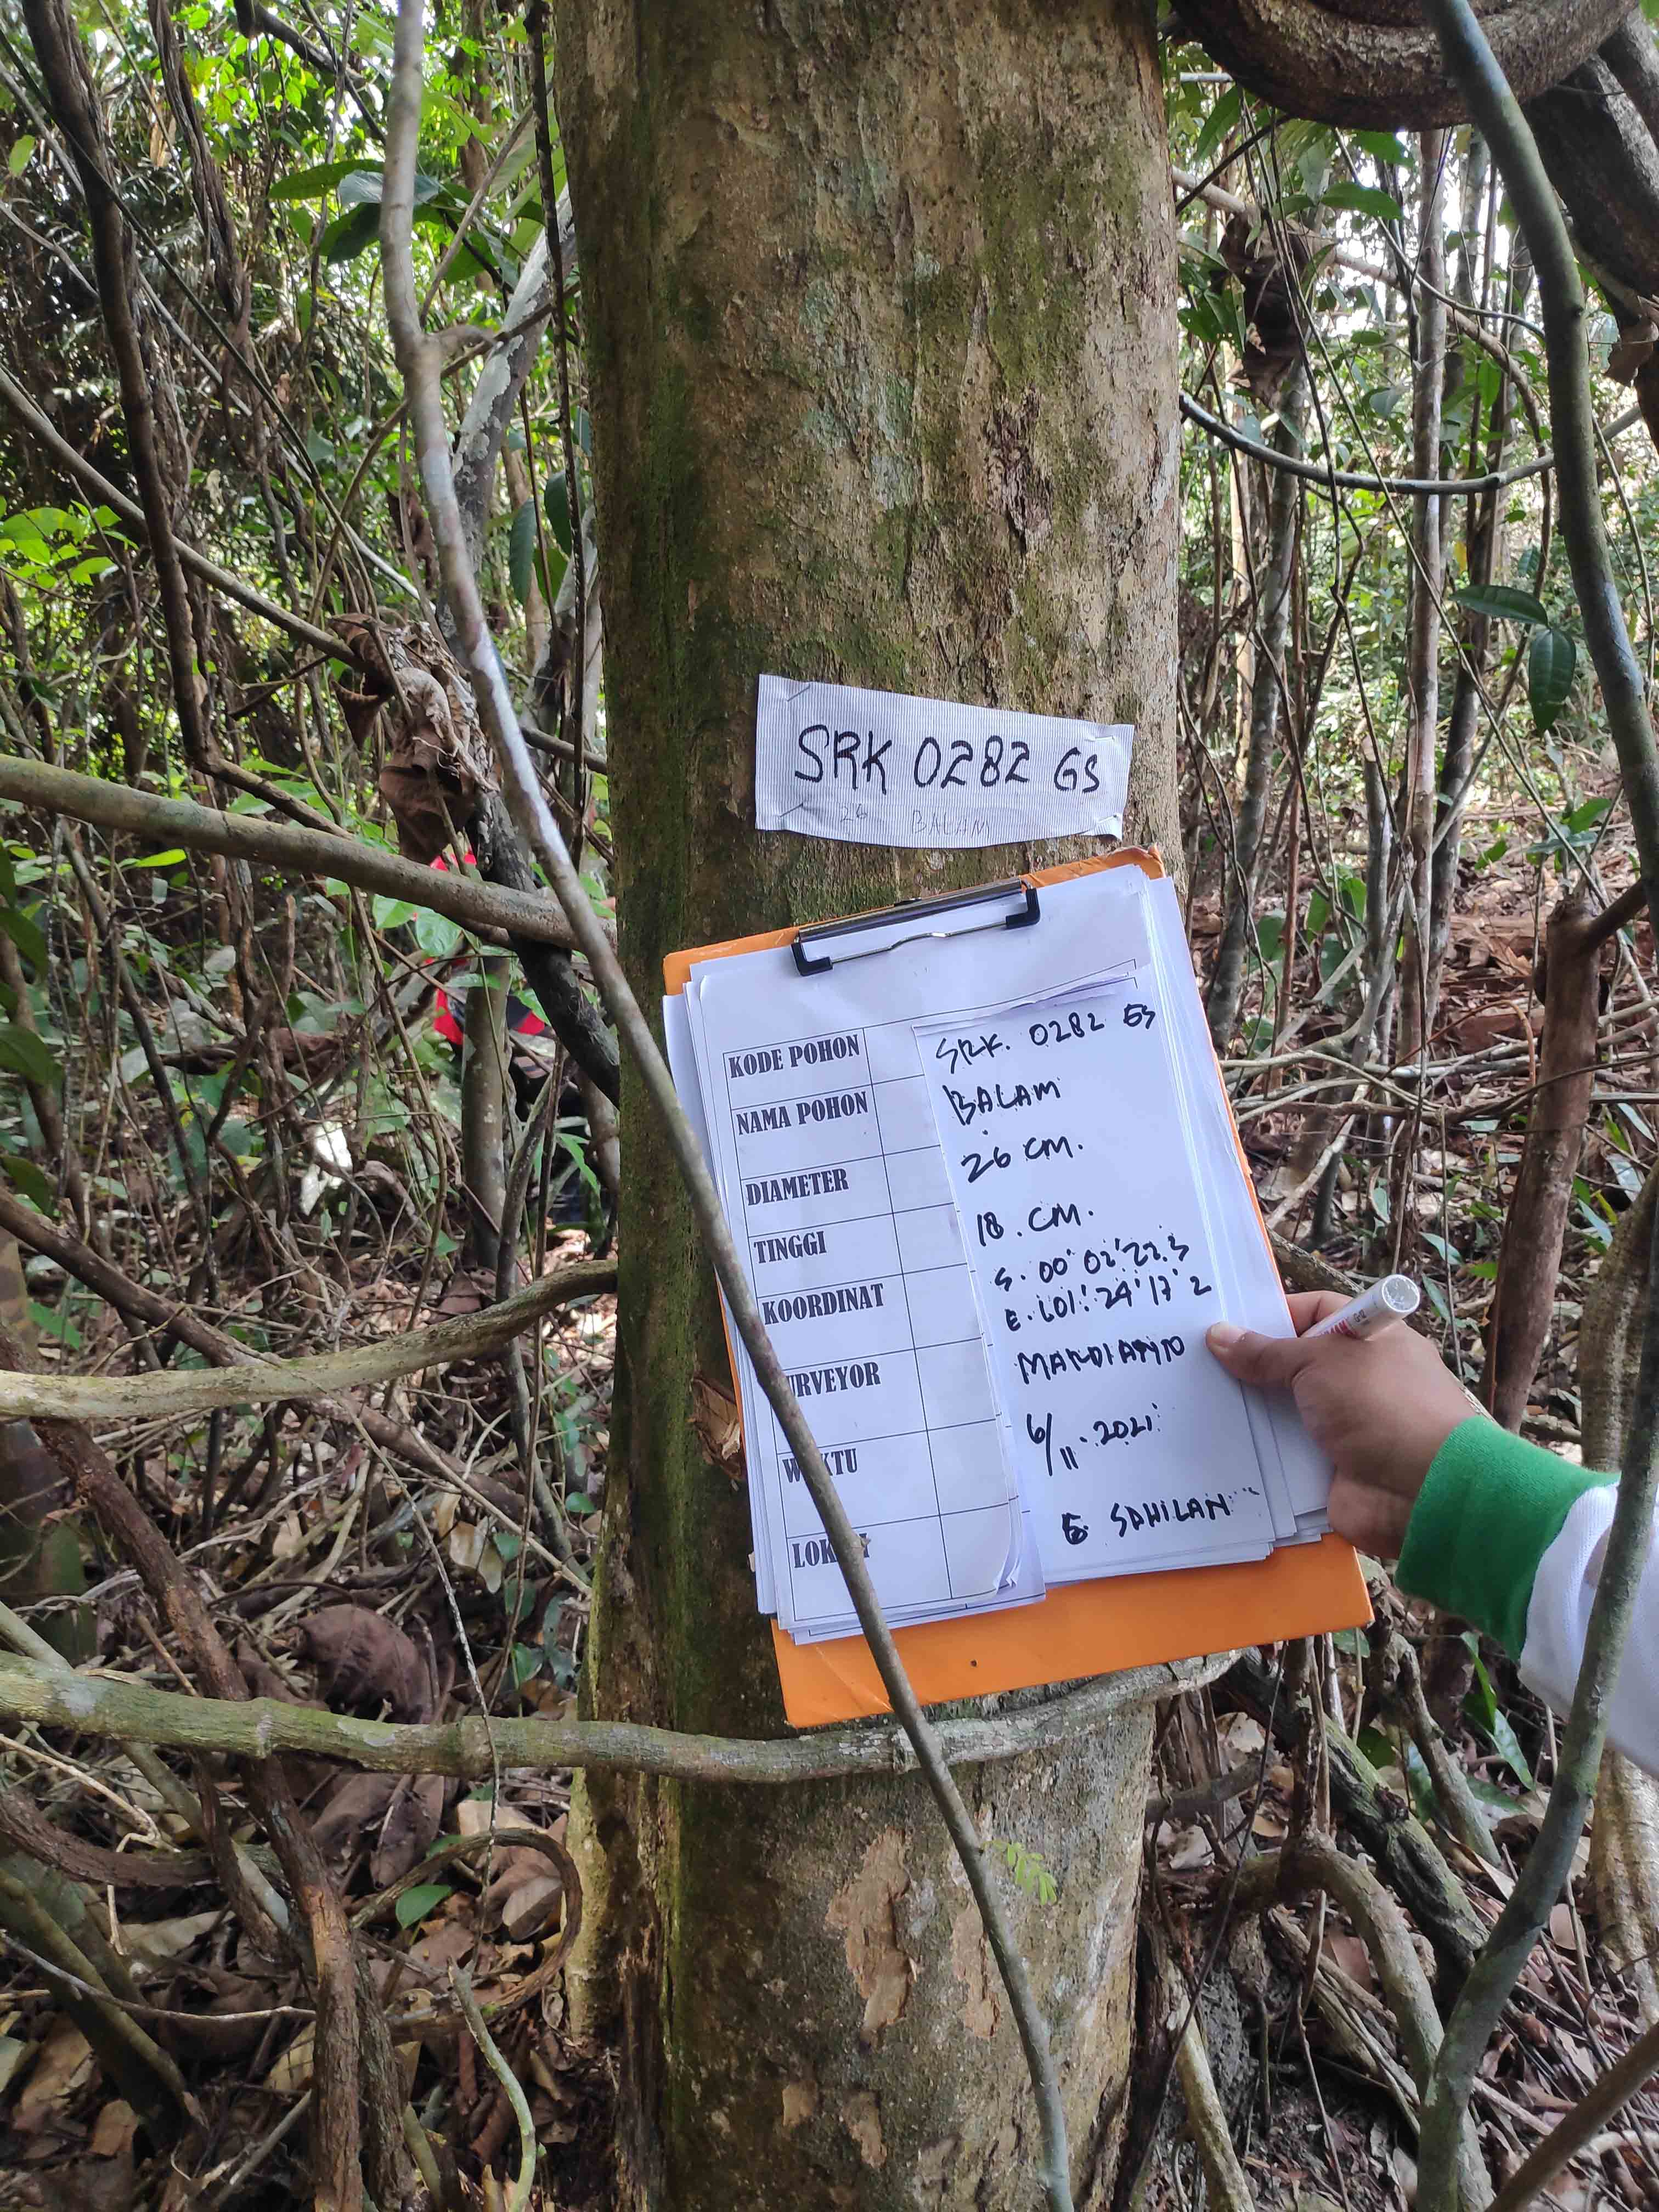 SRK 0282 GS
26 BALAM
KODE POHON SRK. 0282 GS
NAMA POHON BALAM
DIAMETER 26 CM.
TINGGI 18. CM.
KOORDINAT S. 00° 02' 22.3
E. 101° 24' 17' 2
URVEYOR MARDIANTO
WAKTU 6/11. 2021
LOKASI G. SAHILAN